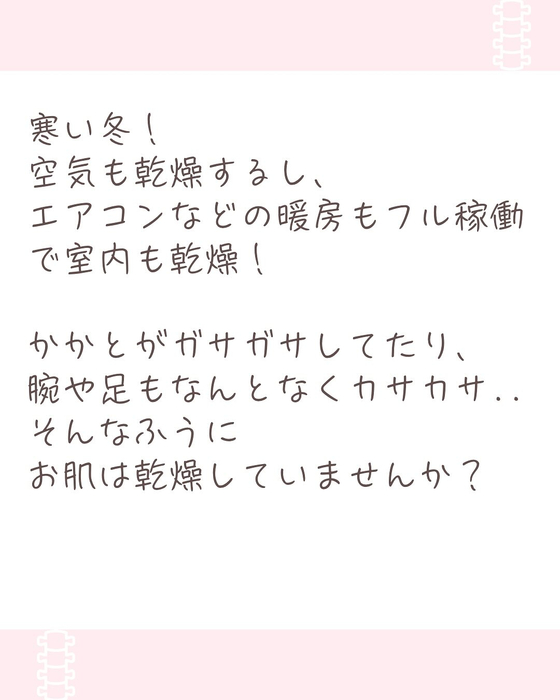 寒い冬！
空気も乾燥するし、
エアコンなどの暖房もフル稼働
で室内も乾燥！
かかとがガサガサしてたり、
腕や足もなんとなくカサカサ..
そんなふうに
お肌は乾燥していませんか？